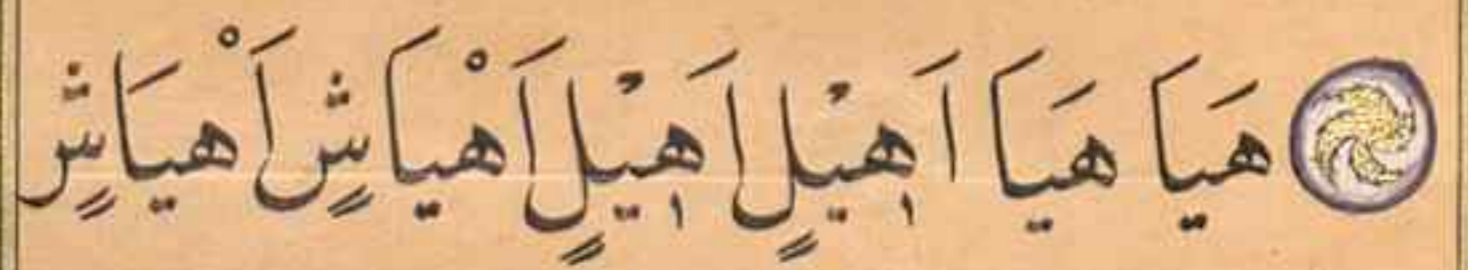 هَيَا هَيَا اَهٖيْلٍ اَهٖيْلٍ اَهْيَاشٍ اَهْيَاشٍ